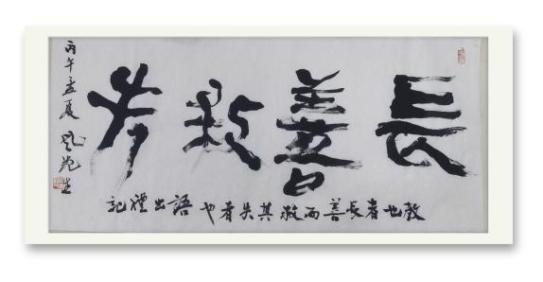 長善救失
教也者長善而救其失者也 語出禮記
丙午孟夏